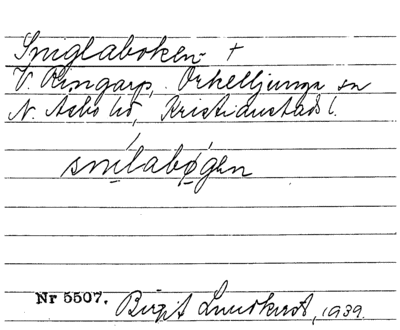 Sniglaboken +
V. Ringarp, Örkelljunga sn
N. Åsbo hd, Kristianstads l.
snilabøgen
Nr 5507. Birgit Lundkvist, 1939.